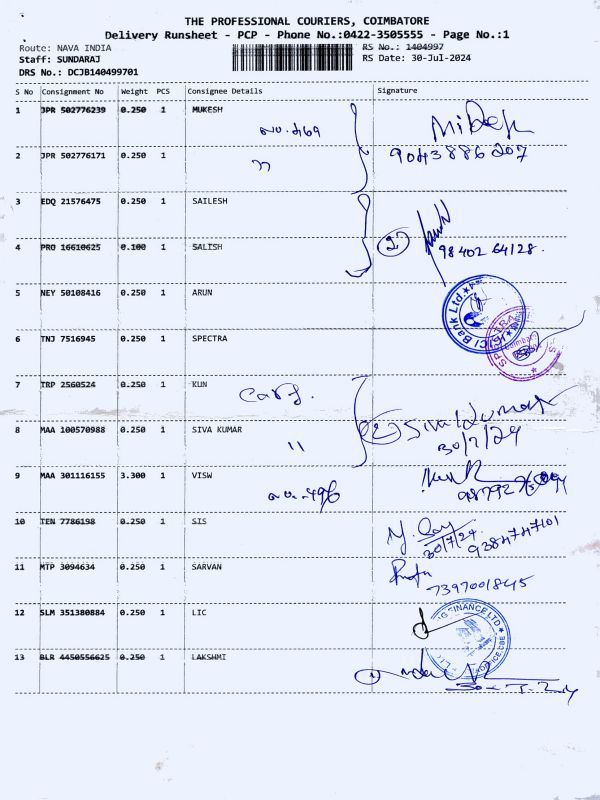 THE PROFESSIONAL COURIERS, COIMBATORE
Delivery Runsheet - PCP - Phone No.:0422-3505555 - Page No.:1
Route: NAVA INDIA
RS No.: 1404997
Staff: SUNDARAJ
RS Date: 30-Jul-2024
DRS No.: DCJB140499701
S No Consignment No Weight PCS Consignee Details Signature
1 JPR 502776239 0.250 1 MUKESH
2 JPR 502776171 0.250 1
9043886207
3 EDQ 21576475 0.250 1 SAILESH
4 PRO 16610625 0.100 1 SALISH
2 98402 64128.
5 NEY 50108416 0.250 1 ARUN
ICICI Bank Ltd.
6 TNJ 7516945 0.250 1 SPECTRA
7 TRP 2560524 0.250 1 KUN
8 MAA 100570988 0.250 1 SIVA KUMAR
Siva Kumar
30/7/24
9 MAA 301116155 3.300 1 VISW
10 TEN 7786198 0.250 1 SIS
30/7/24. 9384747101
11 MTP 3094634 0.250 1 SARVAN
7397001845
12 SLM 351380884 0.250 1 LIC
13 BLR 4450556625 0.250 1 LAKSHMI